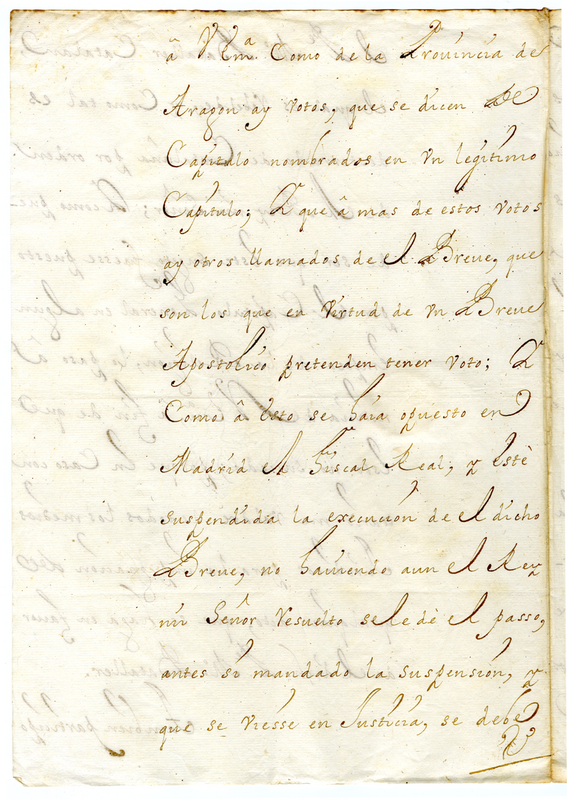 â V. Em.ª Como de la Provincia de
Aragon ay votos, que se dicen de
Capitulo nombrados en vn legitimo
Capitulo; Y que â mas de estos votos
ay otros llamados de el Breve, que
son los que en virtud de vn Breve
Apostolico pretenden tener voto; Y
Como â Esto se haia opuesto en
Madrid el fiscal Real, y Estè
suspendida la execucion de el dicho
Breve, no haviendo aun el Rey
mi Señor resuelto se le dè el passo,
antes si mandado la suspension, y
que se viesse en Justicia, se debe